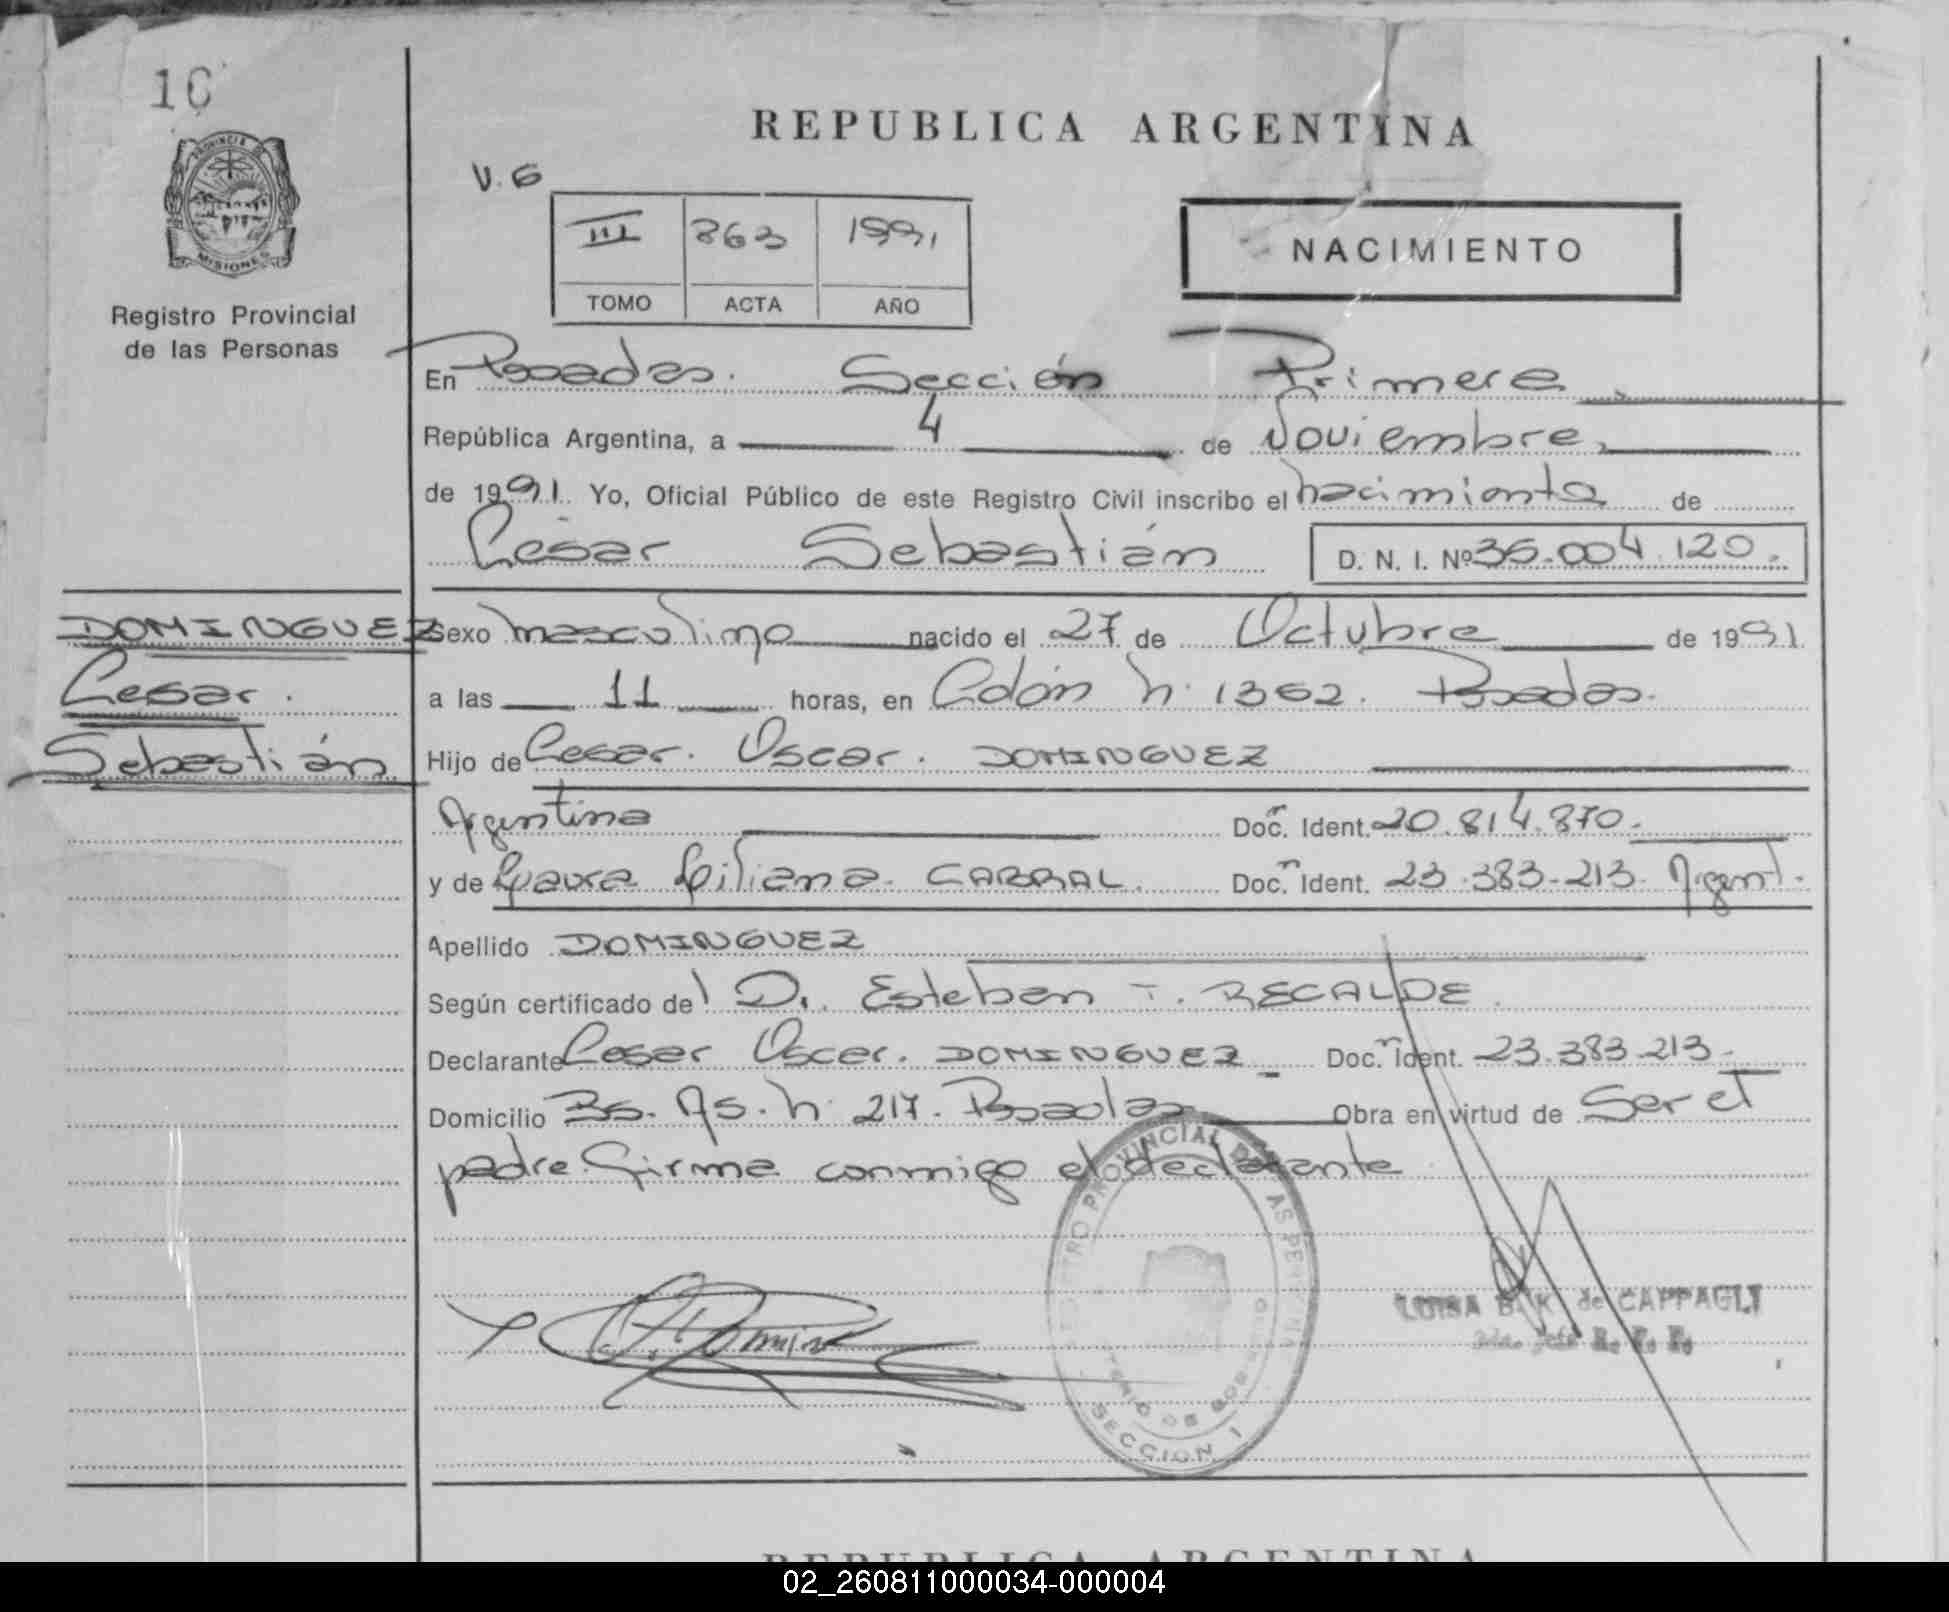 16
REPUBLICA ARGENTINA
PROVINCIA DE
MISIONES
Registro Provincial
de las Personas
V. 6
III 863 1991
TOMO ACTA AÑO
NACIMIENTO
En Posadas. Sección Primera
República Argentina, a 4 de Noviembre,
de 1991. Yo, Oficial Público de este Registro Civil inscribo el nacimiento de
César Sebastián D. N. I. Nº 36.004.120.
DOMINGUEZ
Cesar.
Sebastián
Sexo masculino nacido el 27 de Octubre de 1991.
a las 11 horas, en Colón n. 1362. Posadas.
Hijo de Cesar. Oscar. DOMINGUEZ
Argentina Doc. Ident. 20.814.870.
y de Laura Liliana. CABRAL. Doc. Ident. 23.383.213. Argent.
Apellido DOMINGUEZ
Según certificado del D. Esteban T. RECALDE.
Declarante Cesar Oscar. DOMINGUEZ Doc. Ident. 23.383.213.
Domicilio Bs. As. n. 217. Posadas Obra en virtud de Ser el
padre. Firma conmigo el declarante
REGISTRO PROVINCIAL DE LAS PERSONAS
SECCION 1
LUISA B. K de CAPPAGLI
REPUBLICA ARGENTINA
02_260811000034-000004